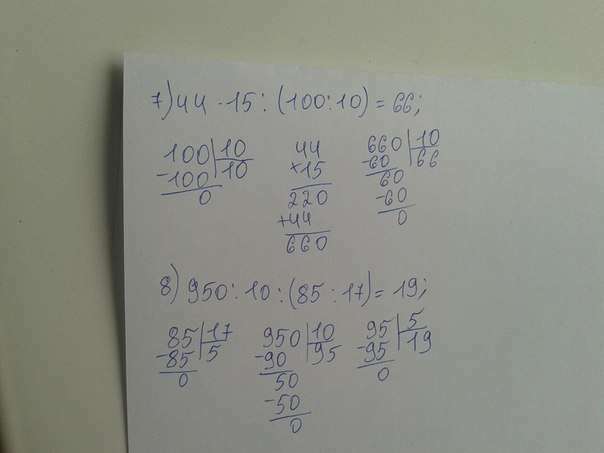 7) 44 · 15 : (100:10) = 66;
100 | 10 44 660 | 10
-100 | 10 ×15 -60 | 66
0 220 60
+44 -60
660 0
8) 950 : 10 : (85 : 17) = 19;
85 | 17 950 | 10 95 | 5
-85 | 5 -90 | 95 -95 | 19
0 50 0
-50
0